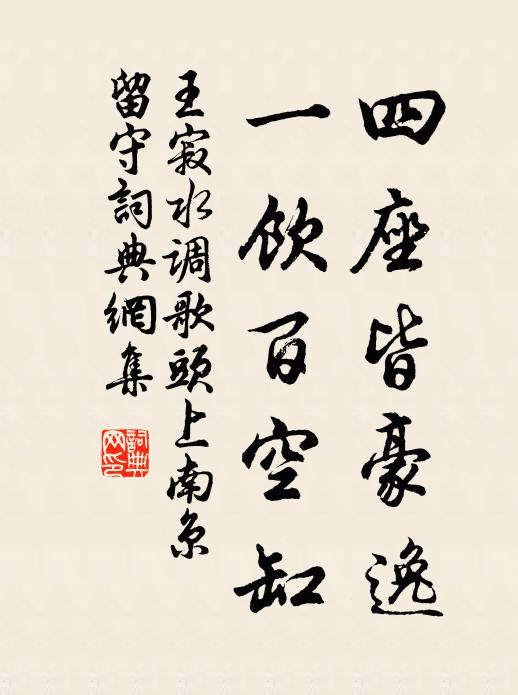 四座皆豪逸
一飲百空缸
王寂水调歌頭上南京
留守詞典網集
詞典网印